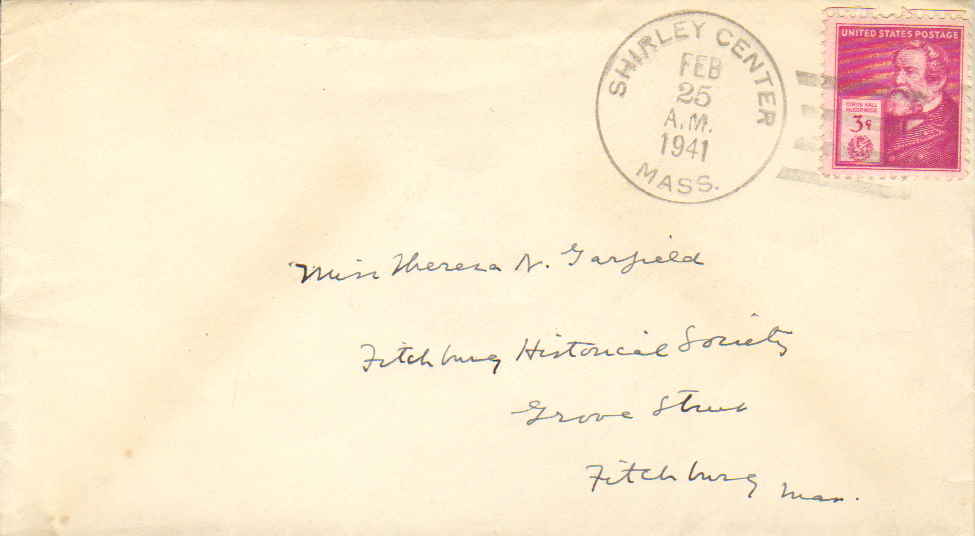 SHIRLEY CENTER
FEB
25
A.M.
1941
MASS.
UNITED STATES POSTAGE
CYRUS HALL
McCORMICK
3¢
Miss Theresa N. Garfield
Fitchburg Historical Society
Grove Street
Fitchburg Mass.